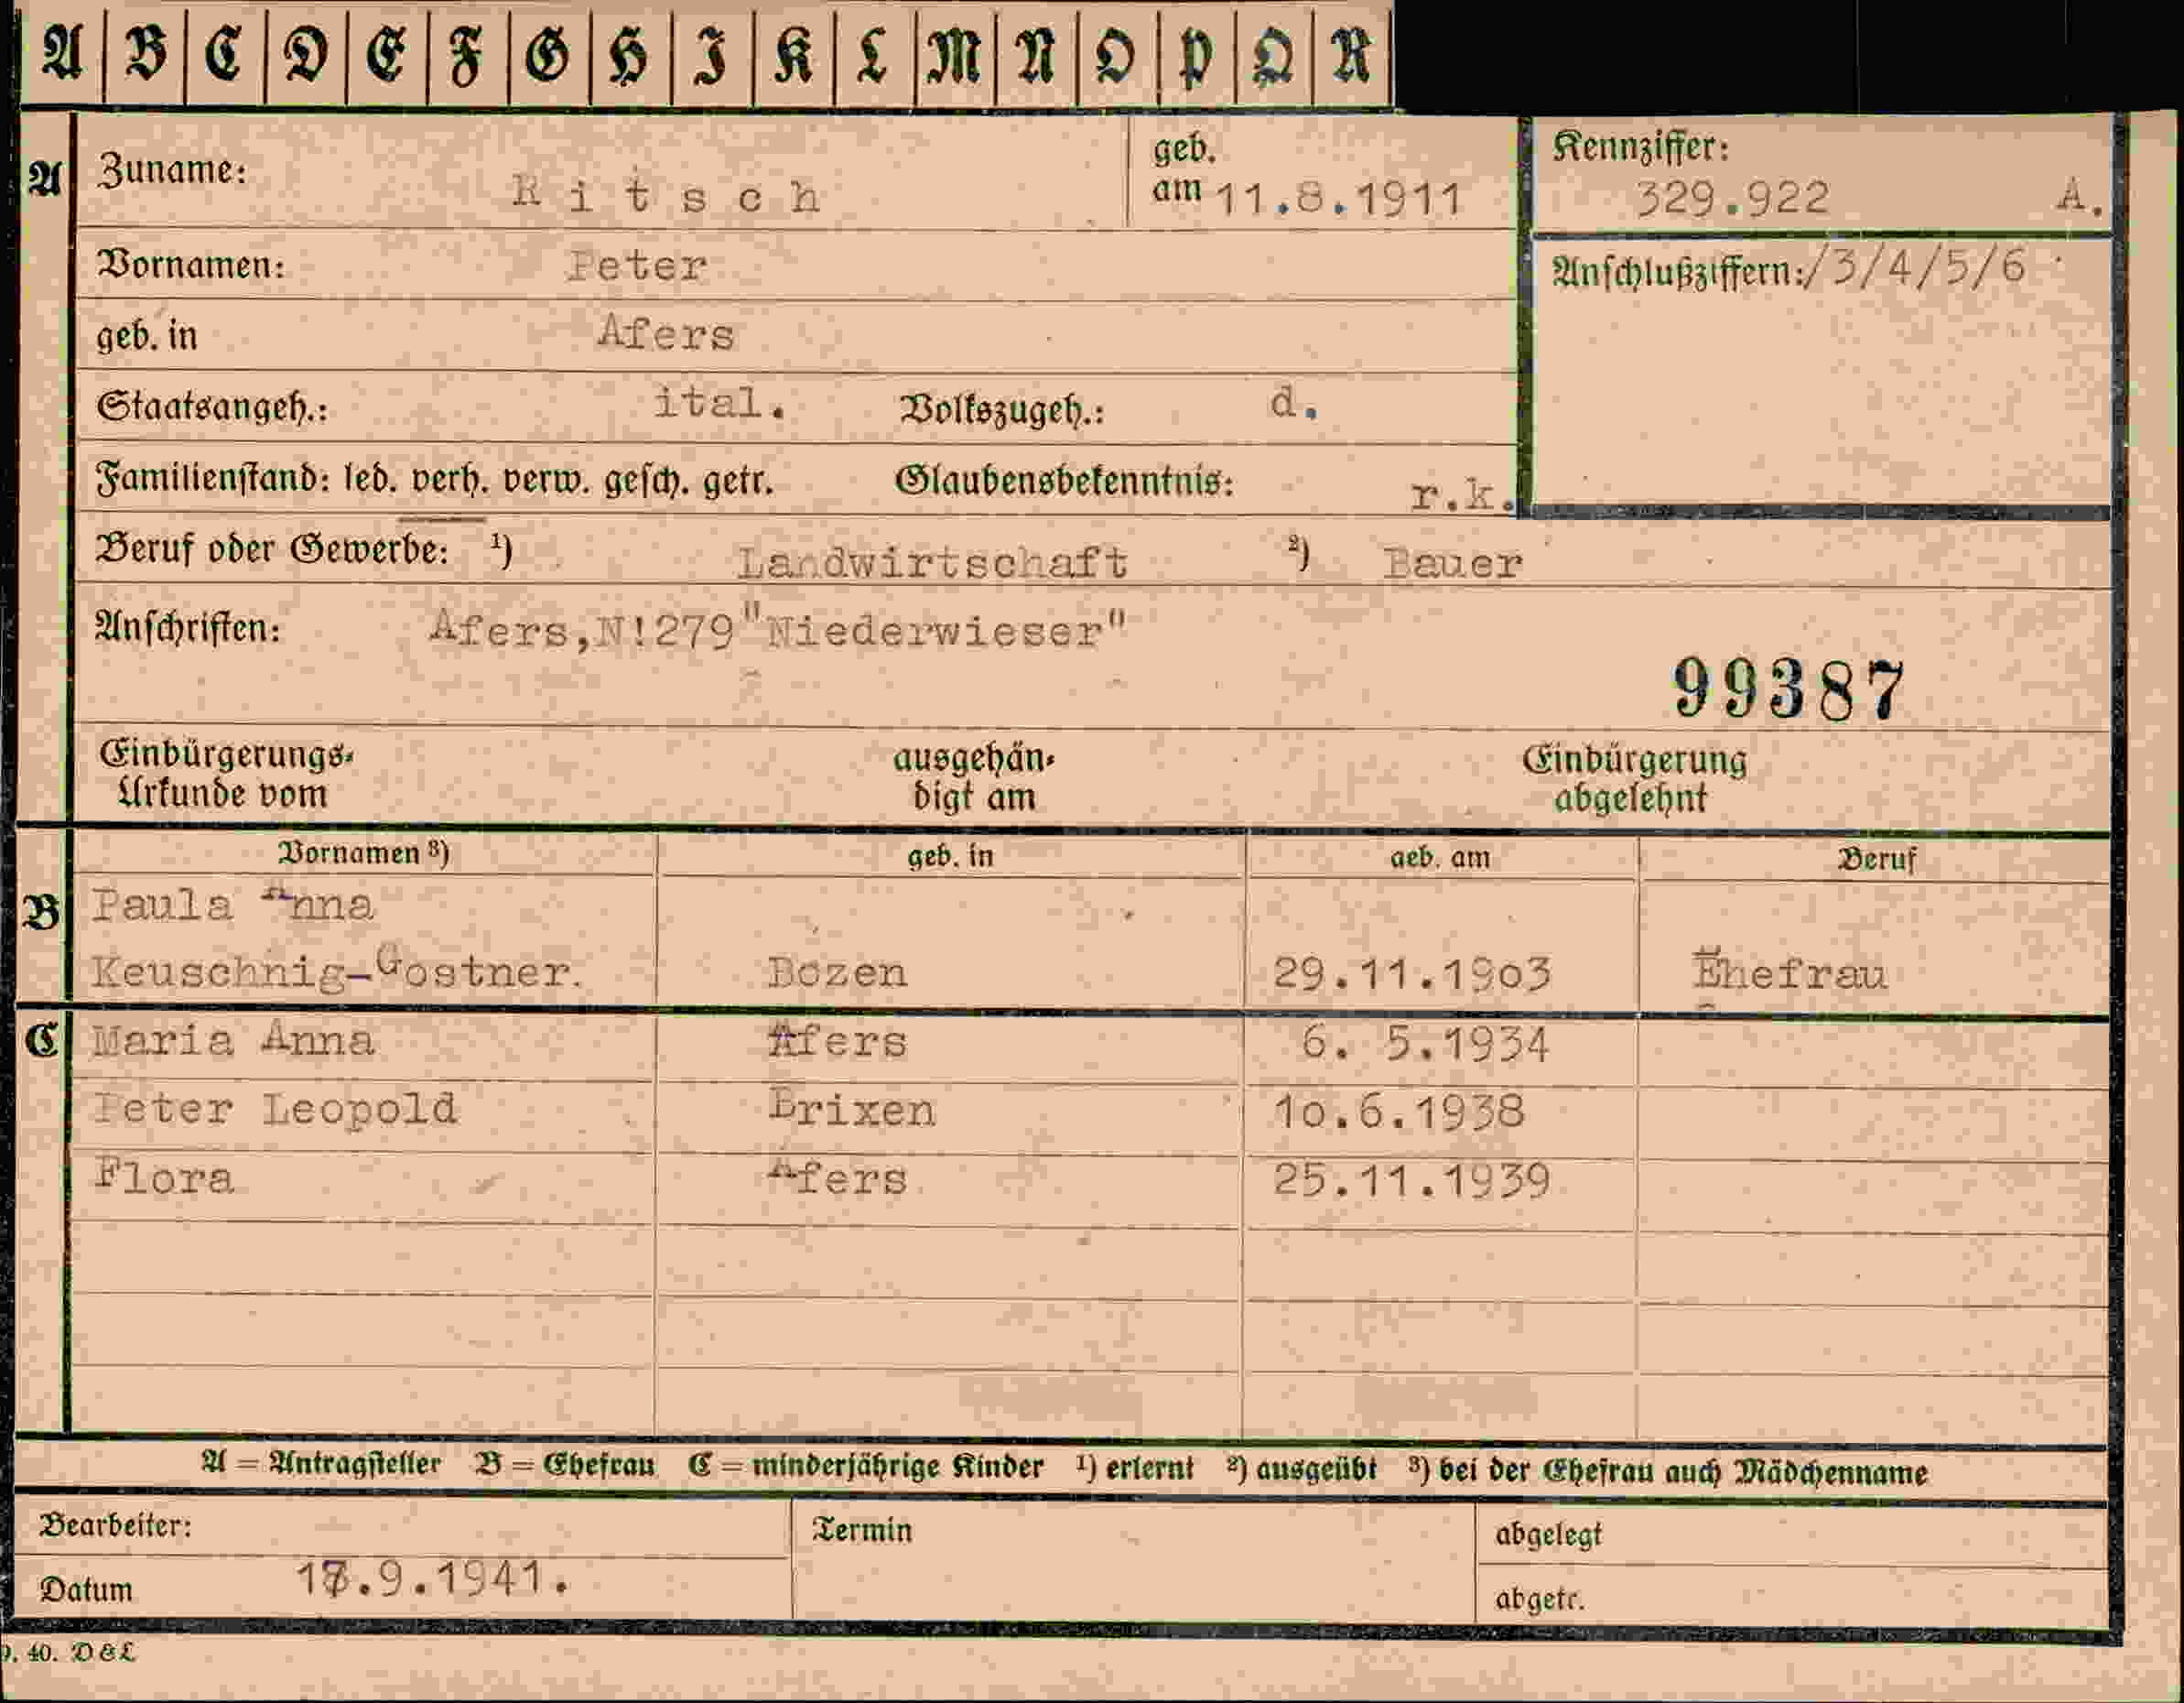 A B C D E F G H I K L M N O P Q R
A Zuname: Ritsch geb. am 11.8.1911 Kennziffer: 329.922 A.
Vornamen: Peter Anschlußziffern: /3/4/5/6
geb. in Afers
Staatsangeh.: ital. Volkszugeh.: d.
Familienstand: led. verh. verw. gesch. getr. Glaubensbekenntnis: r.k.
Beruf oder Gewerbe: ¹) Landwirtschaft ²) Bauer
Anschriften: Afers,N!279"Niederwieser"
99387
Einbürgerungs- ausgehän- Einbürgerung
Urkunde vom digt am abgelehnt
Vornamen ³) geb. in geb. am Beruf
B Paula Anna
Keuschnig-Gostner. Bozen 29.11.1903 Ehefrau
C Maria Anna Afers 6. 5.1934
Peter Leopold Brixen 10.6.1938
Flora Afers 25.11.1939
A = Antragsteller B = Ehefrau C = minderjährige Kinder ¹) erlernt ²) ausgeübt ³) bei der Ehefrau auch Mädchenname
Bearbeiter: Termin abgelegt
Datum .9.1941. abgetr.
40. D&L